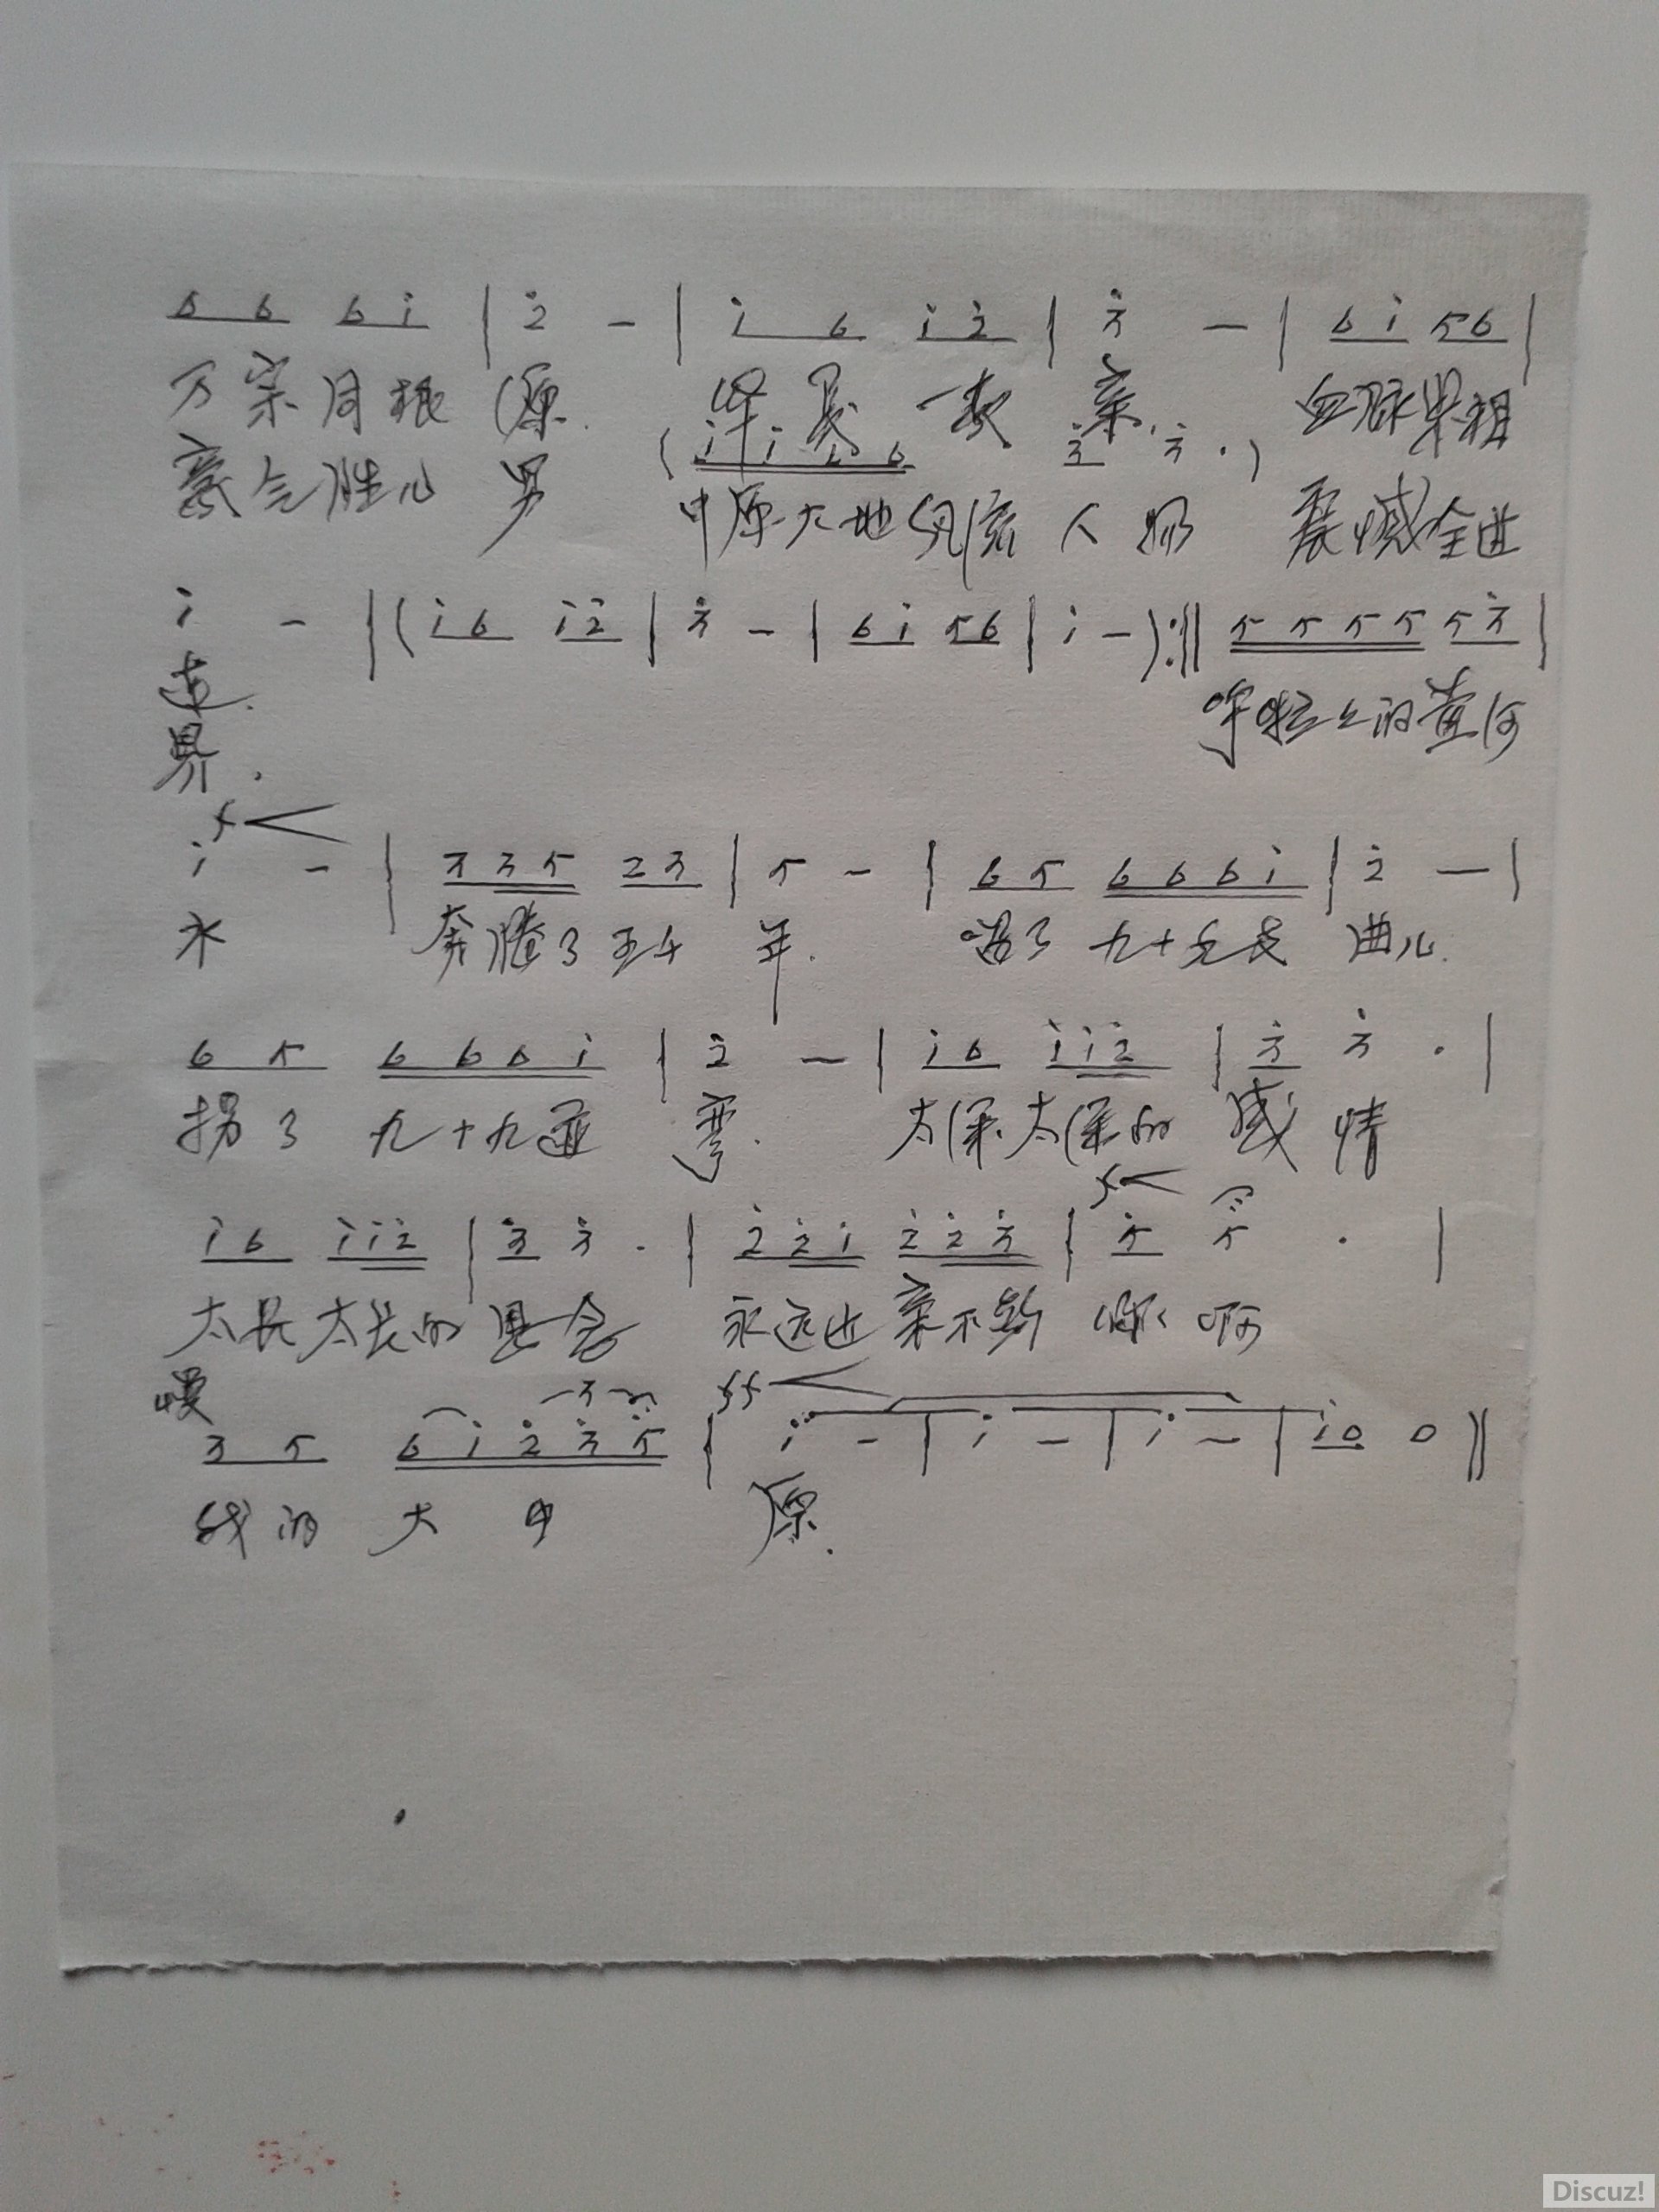 6 6 6 i | 2 - | i 6 i 2 | 3 - | 6 i 5 6 |
万 宗 同 根 源. 泽 民 一 家 亲. 血脉果相
(i i i 6 3 3 ·)
豪气胜儿 男 中原大地风流 人 物 震憾全世
i - | (i 6 i 2 | 3 - | 6 i 5 6 | i -) :|| 5 5 5 5 5 3 |
连.
呼啦上的黄河
界.
f <
i - | 3 3 5 2 3 | 5 - | 6 5 6 6 6 i | 2 - |
水 奔腾了五千 年. 唱了 九十九支 曲儿.
6 5 6 6 6 i | 2 - | i 6 i i 2 | 3 3 · |
拐了 九十九道 弯. 太深太深的 感 情
f <
i 6 i i 2 | 3 3 · | 2 2 i 2 2 3 | 5 5 · |
太长太长的 思念 永远也 亲不够 你 啊
慢 3 ff <
3 5 6 i 2 3 5 | i - | i - | i - | i 0 0 ||
我的 大 中 原.
Discuz!